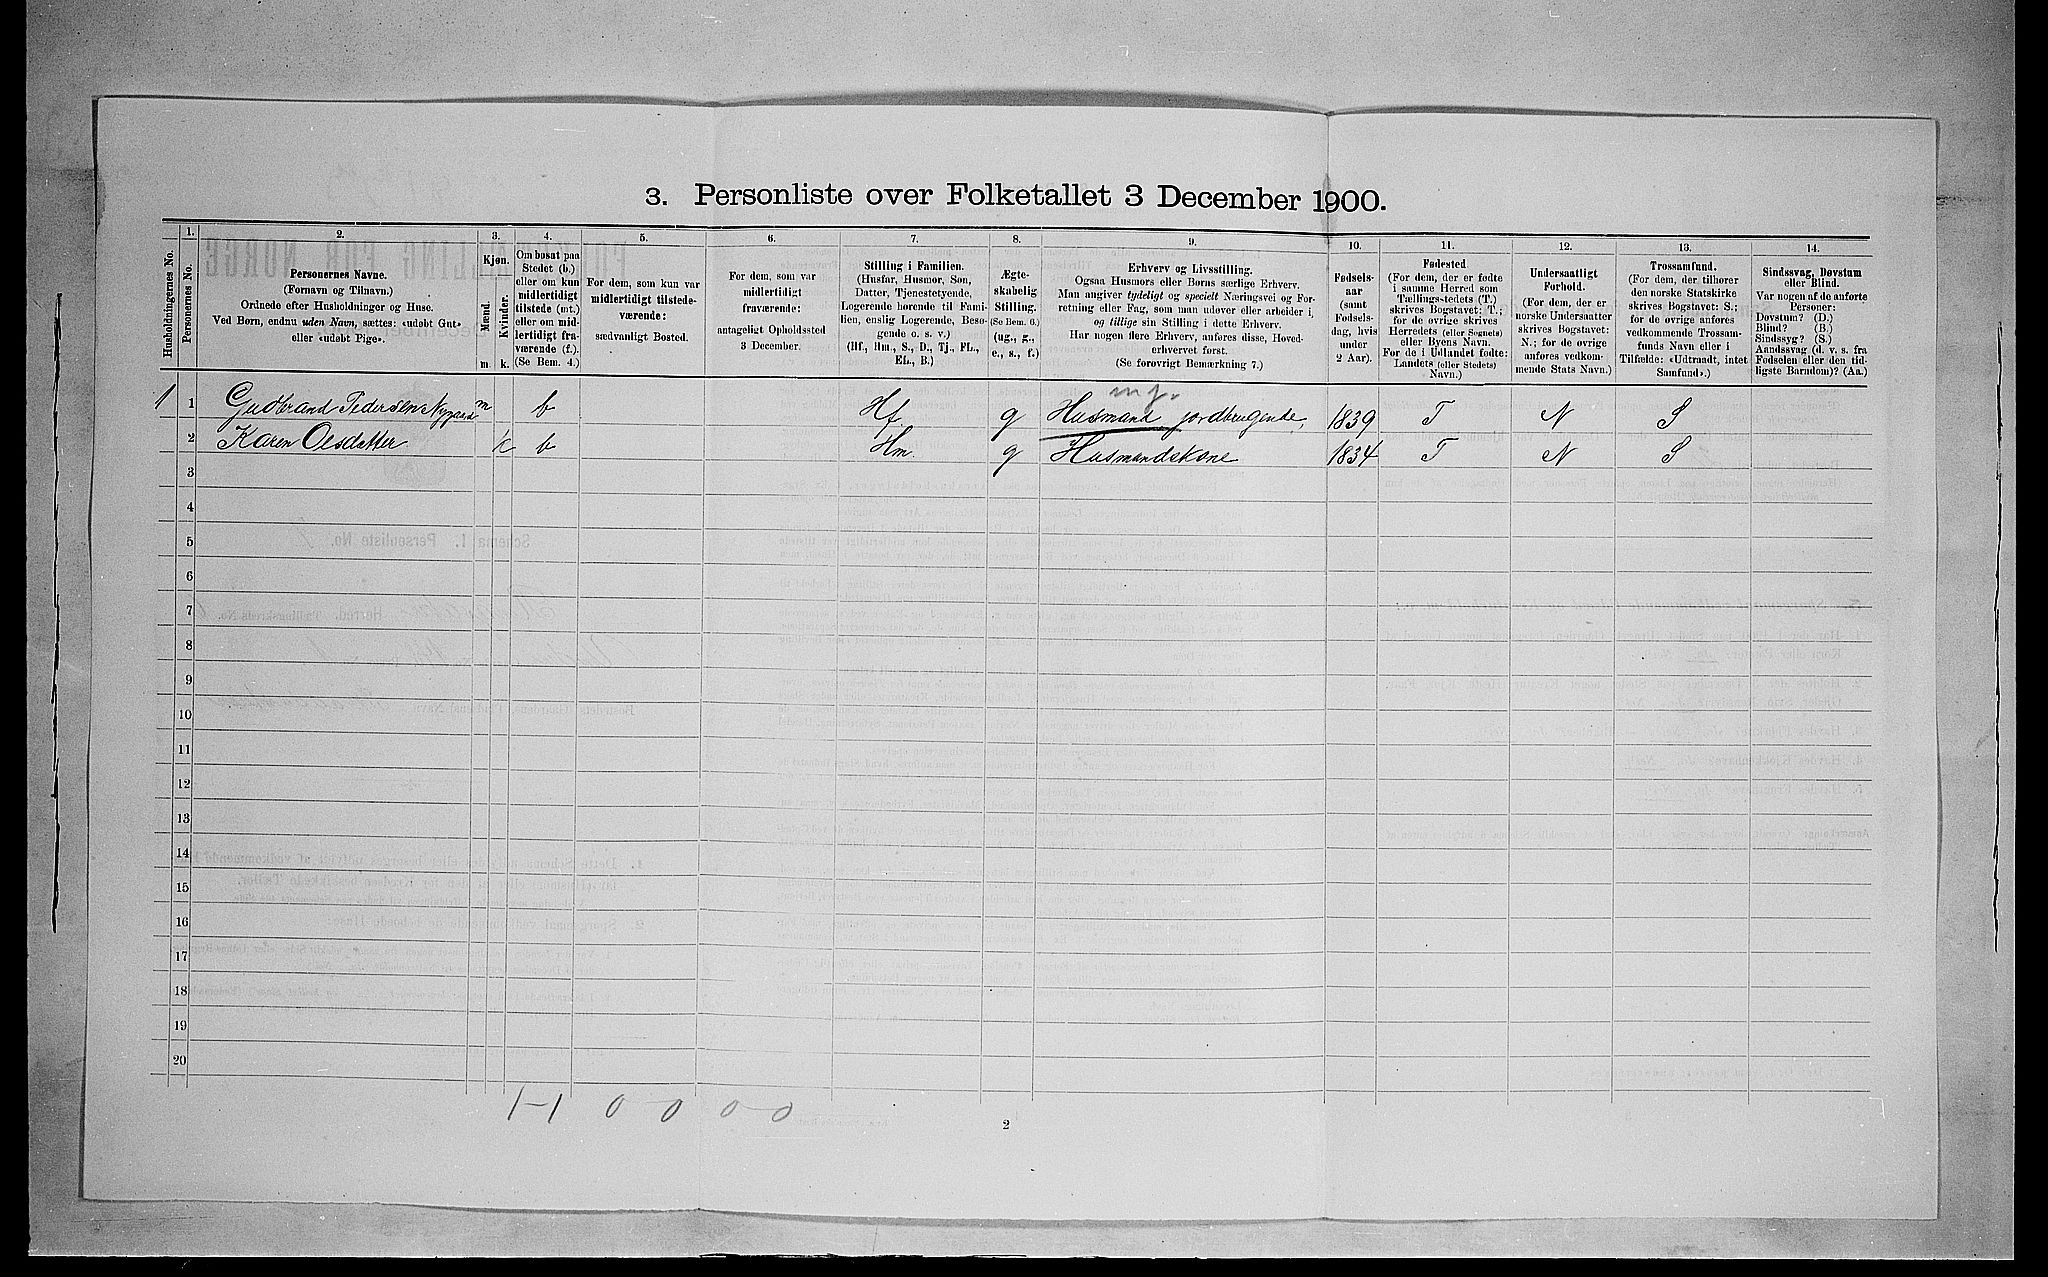 3. Personliste over Folketallet 3 December 1900.
1. 2. 3. 4. 5. 6. 7. 8. 9. 10. 11. 12. 13. 14.
Husholdningernes No.
Personernes No.
Personernes Navne.
(Fornavn og Tilnavn.)
Ordnede efter Husholdninger og Huse.
Ved Børn, endnu uden Navn, sættes: «udøbt Gut»
eller «udøbt Pige».
Kjøn.
Mænd.
Kvinder.
m. k.
Om bosat paa
Stedet (b.)
eller om kun
midlertidigt
tilstede (mt.)
eller om mid-
lertidigt fra-
værende (f.).
(Se Bem. 4.)
For dem, som kun var
midlertidigt tilstede-
værende:
sædvanligt Bosted.
For dem, som var
midlertidigt
fraværende:
antageligt Opholdssted
3 December.
Stilling i Familien.
(Husfar, Husmor, Søn,
Datter, Tjenestetyende,
Logerende hørende til Fami-
lien, enslig Logerende, Besø-
gende o. s. v.)
(Hf., Hm., S., D., Tj., FL.,
EL., B.)
Ægte-
skabelig
Stilling.
(Se Bem. 6.)
(ug., g.,
e., s., f.)
Erhverv og Livsstilling.
Ogsaa Husmors eller Børns særlige Erhverv.
Man angiver tydeligt og specielt Næringsvei og For-
retning eller Fag, som man udøver eller arbeider i,
og tillige sin Stilling i dette Erhverv.
Har nogen flere Erhverv, anføres disse, Hoved-
erhvervet først.
(Se forøvrigt Bemærkning 7.)
Fødsels-
aar
(samt
Fødsels-
dag, hvis
under
2 Aar).
Fødested
(For dem, der er fødte
i samme Herred som
Tællings-stedets (T.)
skrives Bogstavet: T.;
for de øvrige skrives
Herredets (eller Sognets)
eller Byens Navn.
For de i Udlandet fødte:
Landets (eller Stedets)
Navn.)
Undersaatligt
Forhold.
(For dem, der er
norske Undersaatter
skrives Bogstavet:
N.; for de øvrige
anføres vedkom-
mende Stats Navn.)
Trossamfund.
(For dem, der tilhører
den norske Statskirke
skrives Bogstavet: S.;
for de øvrige anføres
vedkommende Trossam-
funds Navn eller i
Tilfælde: «Udtraadt, intet
Samfund».)
Sindssvag, Døvstum
eller Blind.
Var nogen af de anførte
Personer:
Døvstum? (D.)
Blind? (B.)
Sindssyg? (S.)
Aandssvag (d. v. s. fra
Fødselen eller den tid-
ligste Barndom)? (Aa.)
mf.
1 1 Gudbrand Pedersen Nygaard m b Hf. g Husmand jordbrugende, 1839 T N S
2 Karen Olsdatter k b Hm. g Husmandskone 1834 T N S
3
4
5
6
7
8
9
10
11
12
13
14
15
16
17
18
19
20
1-1 0 0 0-0
2